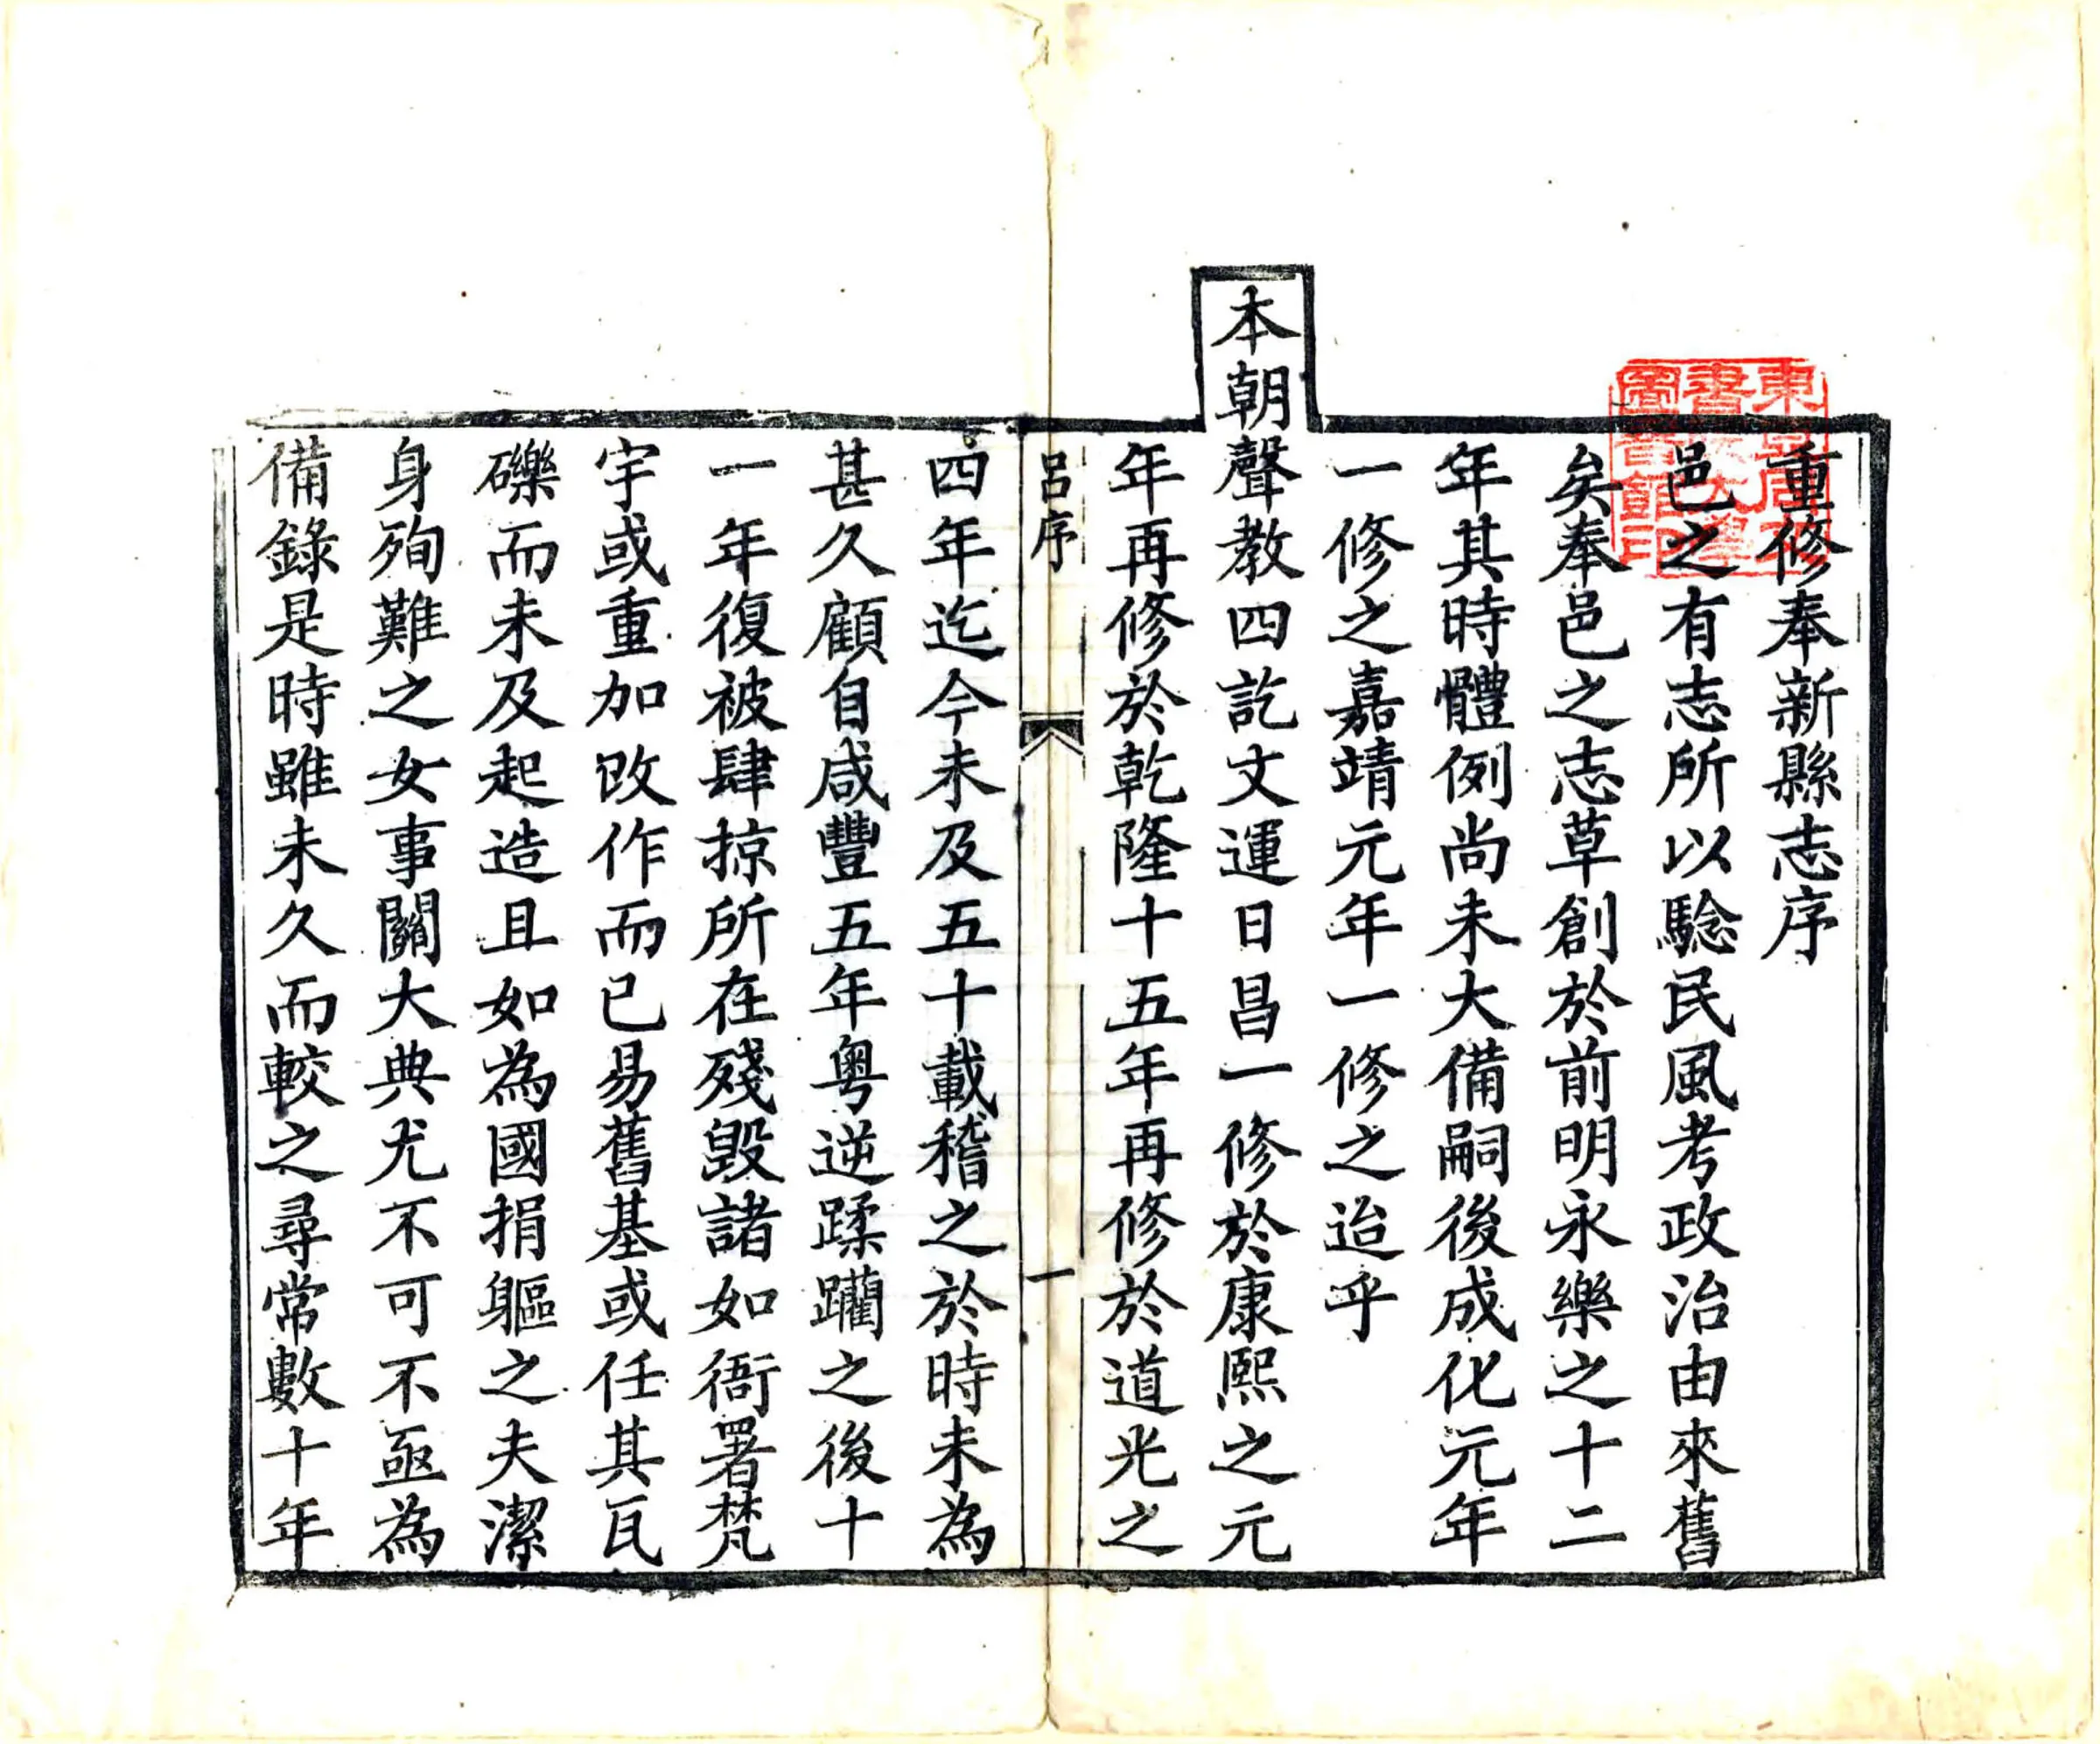 重修奉新縣志序
邑之有志所以騐民風考政治由來舊
矣奉邑之志草創於前明永樂之十二
年其時體例尚未大備嗣後成化元年
一修之嘉靖元年一修之迨乎
本朝聲教四訖文運日昌一修於康熙之元
年再修於乾隆十五年再修於道光之
呂序
一
四年迄今未及五十載稽之於時未為
甚久顧自咸豐五年粵逆蹂躪之後十
一年復被肆掠所在殘毀諸如衙署梵
宇或重加改作而已易舊基或任其瓦
礫而未及起造且如為國捐軀之夫潔
身殉難之女事關大典尤不可不亟為
備錄是時雖未久而較之尋常數十年